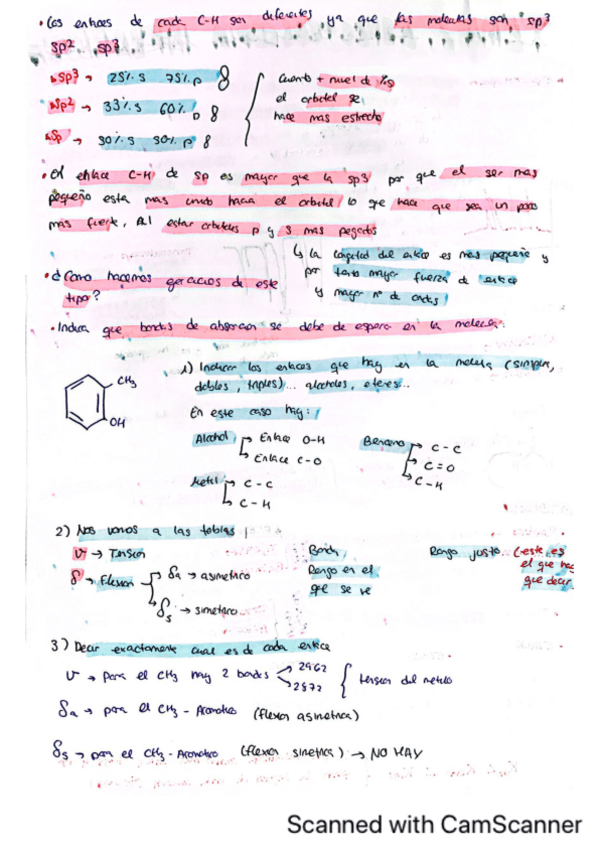 • Los enlaces de cada C-H son diferentes, ya que las moleculas son sp3
sp2 sp3
sp3 → 25% s 75% p
sp2 → 33% s 60% p
sp → 50% s 50% p
Cuanto + nivel de %s
el orbital se
hace mas estrecho
• El enlace C-H de sp es mayor que la sp3 por que el ser mas
pequeño esta mas unido hacia el orbital lo que hace que sea un poco
más fuerte, Al estar orbitales p y s mas pegados
↳ la longitud del enlace es mas pequeña y
por tanto mayor fuerza de enlace
y mayor nº de ondas
• ¿Como hacemos ejercicios de este
tipo?
• Indica que bandas de absorcion se debe de esperar en la molecula:
CH3
OH
1) Indicar los enlaces que hay en la molecula (simples,
dobles, triples)... alcoholes, eteres...
En este caso hay:
Alcohol → Enlace O-H
→ Enlace C-O
Benceno → C-C
→ C=O
→ C-H
Metil → C-C
→ C-H
2) Nos vamos a las tablas
ν → Tension
δ → flexion → δa → asimetrico
→ δs → simetrico
Banda,
Rango en el
que se ve
Rango justo (este es
el que hay
que decir
3) Decir exactamente cual es de cada enlace
ν → para el CH3 hay 2 bandas → 2962
→ 2872
tension del metilo
δa → para el CH3 - Aromatico (flexion asimetrica)
δs → para el CH3 - Aromatico (flexion simetrica) → NO HAY
Scanned with CamScanner